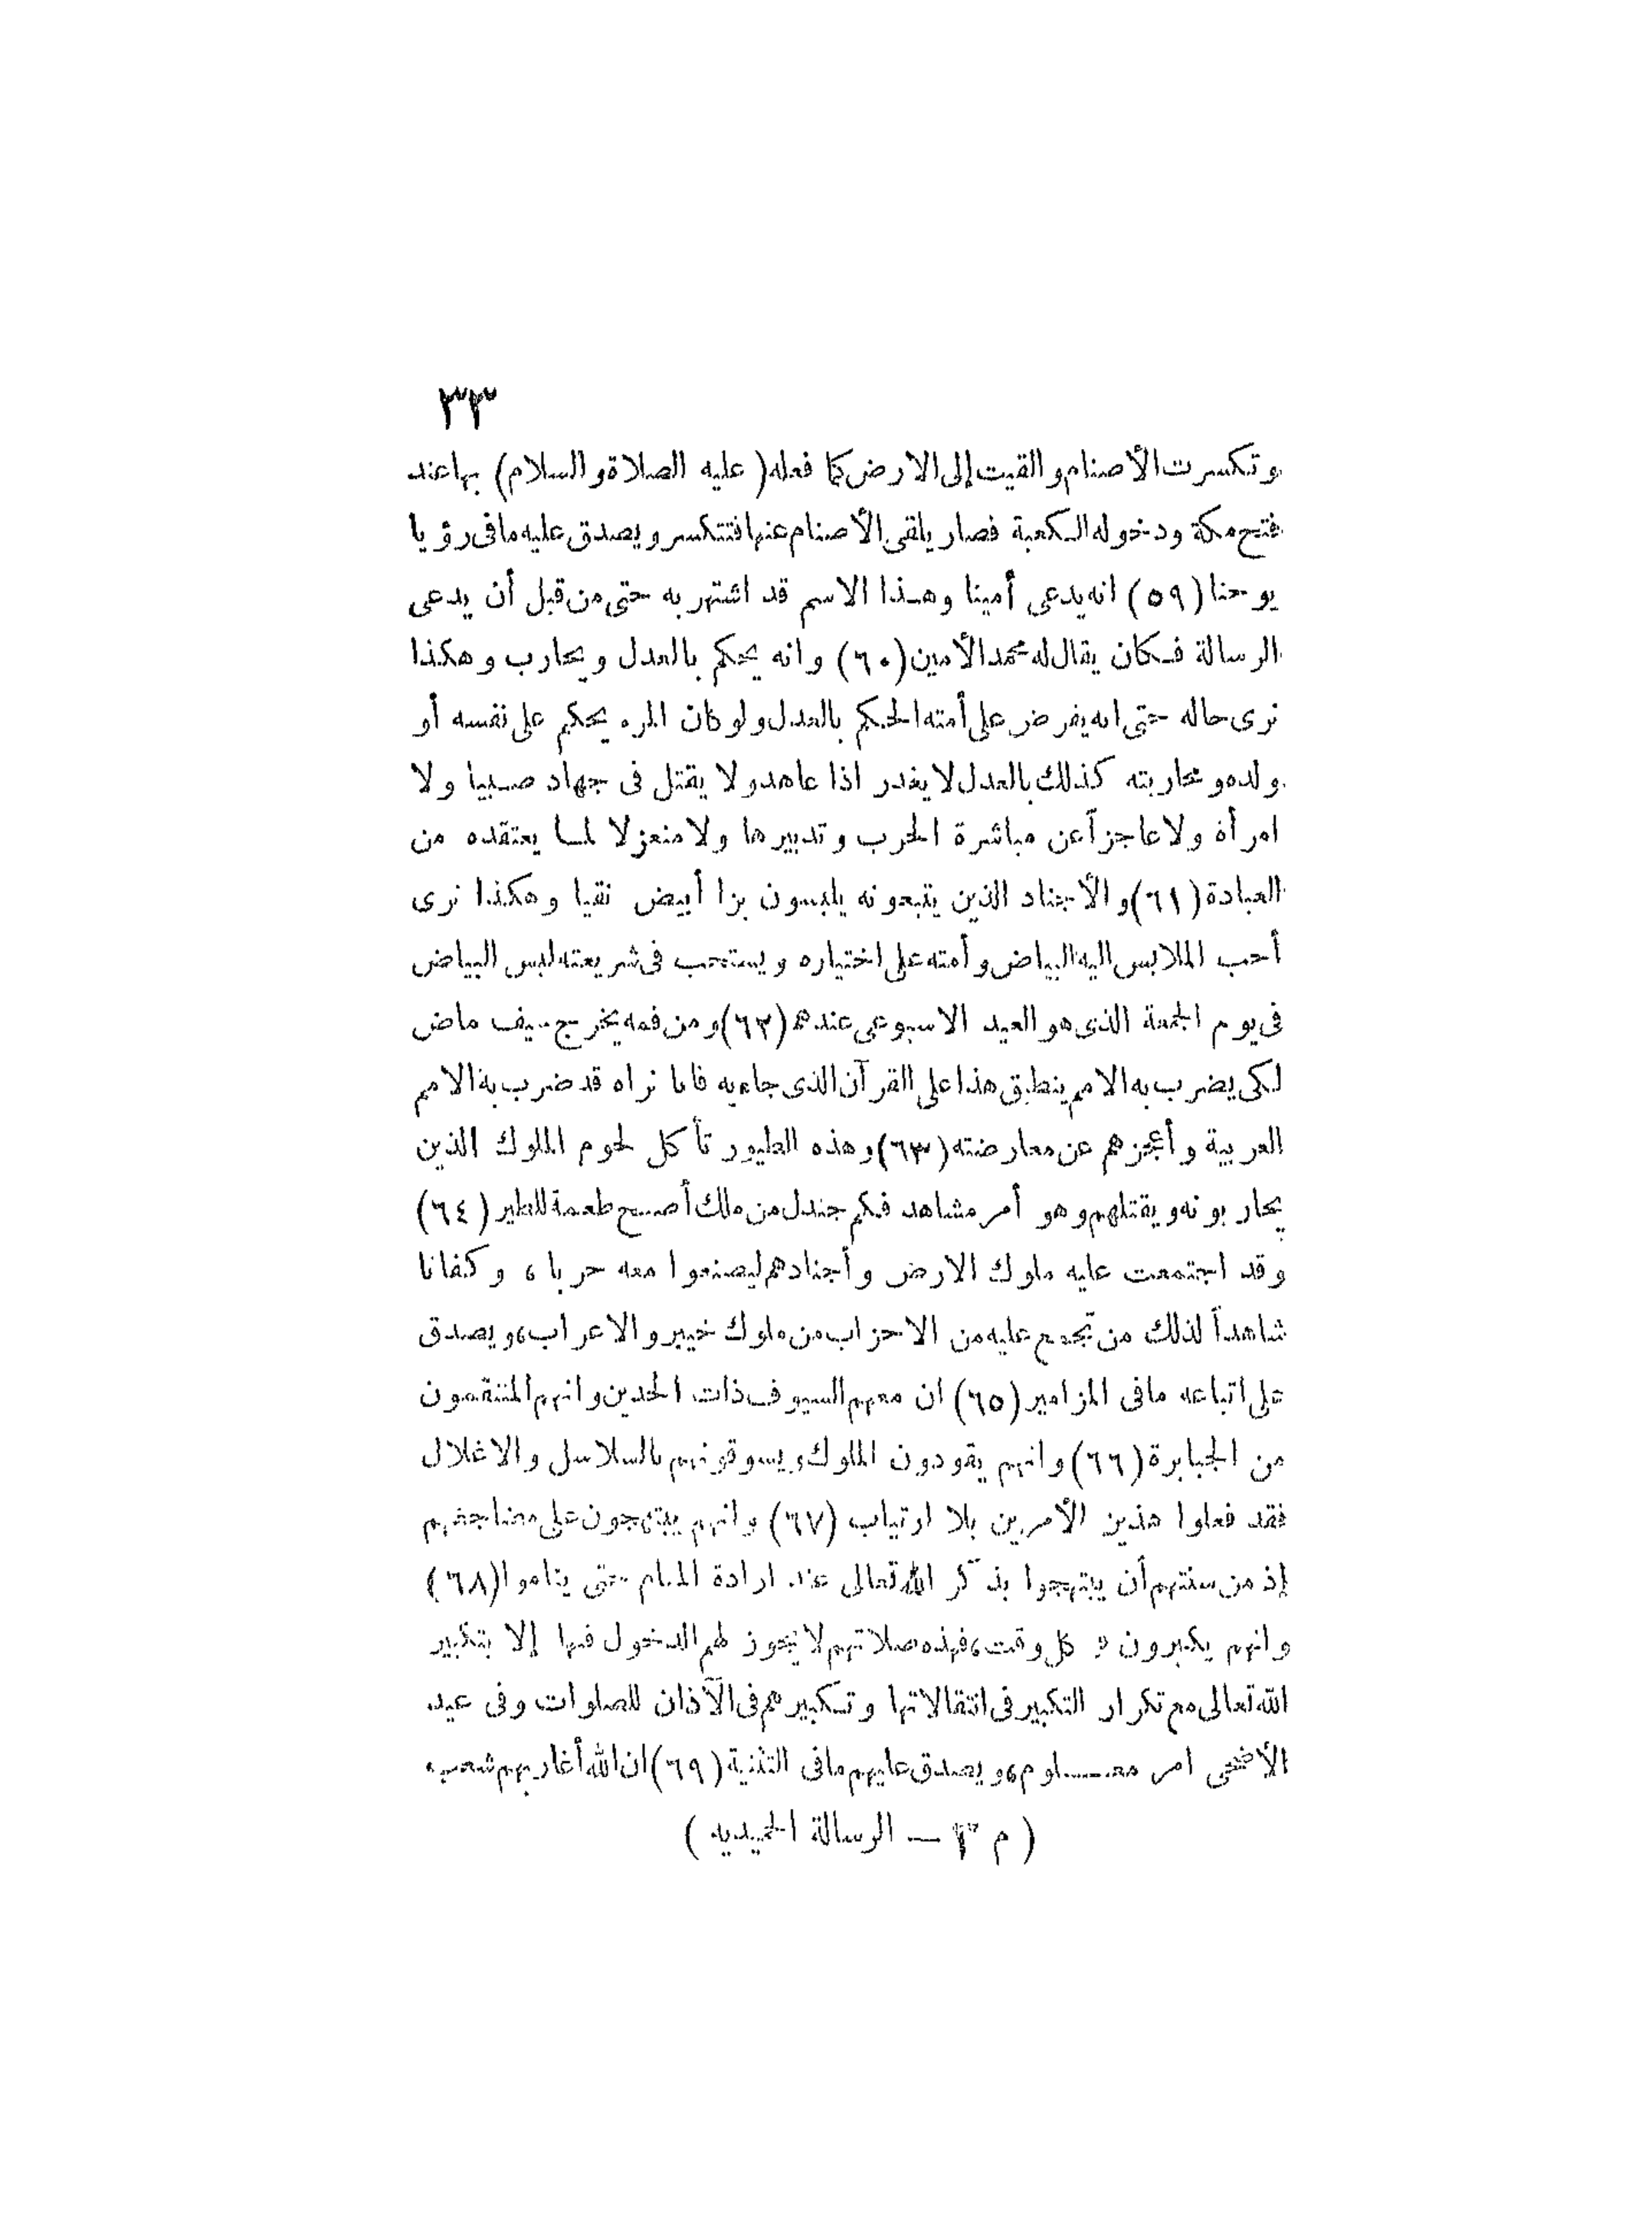 ٣٣
وتكسرت الأصنام والقيت إلى الارض كما فعله (عليه الصلاة والسلام) بها عند
فتح مكة ودخوله الكعبة فصار يلقى الأصنام عنها فتتكسر ويصدق عليه مافى رؤيا
يوحنا (٥٩) انه يدعى أمينا وهذا الاسم قد اشتهر به حتى من قبل أن يدعى
الرسالة فكان يقال له محمد الأمين (٦٠) وانه يحكم بالعدل ويحارب وهكذا
نرى حاله حتى انه يفرض على أمته الحكم بالعدل ولو كان المرء يحكم على نفسه أو
ولده ومحاربته كذلك بالعدل لا يغدر اذا عاهد ولا يقتل فى جهاد صبيا ولا
امرأة ولا عاجزاً عن مباشرة الحرب وتدبيرها ولا منعزلا لما يعتقده من
العبادة (٦١) والأجناد الذين يتبعونه يلبسون بزا أبيض نقيا وهكذا نرى
أحب الملابس اليه البياض وأمته على اختياره ويستحب فى شريعته لبس البياض
فى يوم الجمعة الذى هو العيد الاسبوعى عندهم (٦٢) ومن فمه يخرج سيف ماض
لكى يضرب به الامم ينطبق هذا على القرآن الذى جاء به فانا نراه قد ضرب به الامم
العربية وأعجزهم عن معارضته (٦٣) وهذه الطيور تأكل لحوم الملوك الذين
يحاربونه ويقتلهم وهو أمر مشاهد فكم جندل من ملك أصبح طعمة للطير (٦٤)
وقد اجتمعت عليه ملوك الارض وأجنادهم ليصنعوا معه حربا، وكفانا
شاهداً لذلك من تجمع عليه من الاحزاب من ملوك خيبر والاعراب، ويصدق
على اتباعه مافى المزامير (٦٥) ان معهم السيوف ذات الحدين وانهم المنتقمون
من الجبابرة (٦٦) وانهم يقودون الملوك ويسوقونهم بالسلاسل والاغلال
فقد فعلوا هذين الأمرين بلا ارتياب (٦٧) وانهم يبتهجون على مضاجعهم
إذ من سنتهم أن يبتهجوا بذكر الله تعالى عند ارادة المنام حتى يناموا (٦٨)
وانهم يكبرون كل وقت، فهذه صلاتهم لا يجوز لهم الدخول فيها إلا بتكبير
الله تعالى مع تكرار التكبير فى انتقالاتها وتكبيرهم فى الآذان للصلوات وفى عيد
الأضحى امر معلوم، ويصدق عليهم مافى التثنية (٦٩) ان الله أغار بهم شعبه
(م ٣ — الرسالة الحميديه)